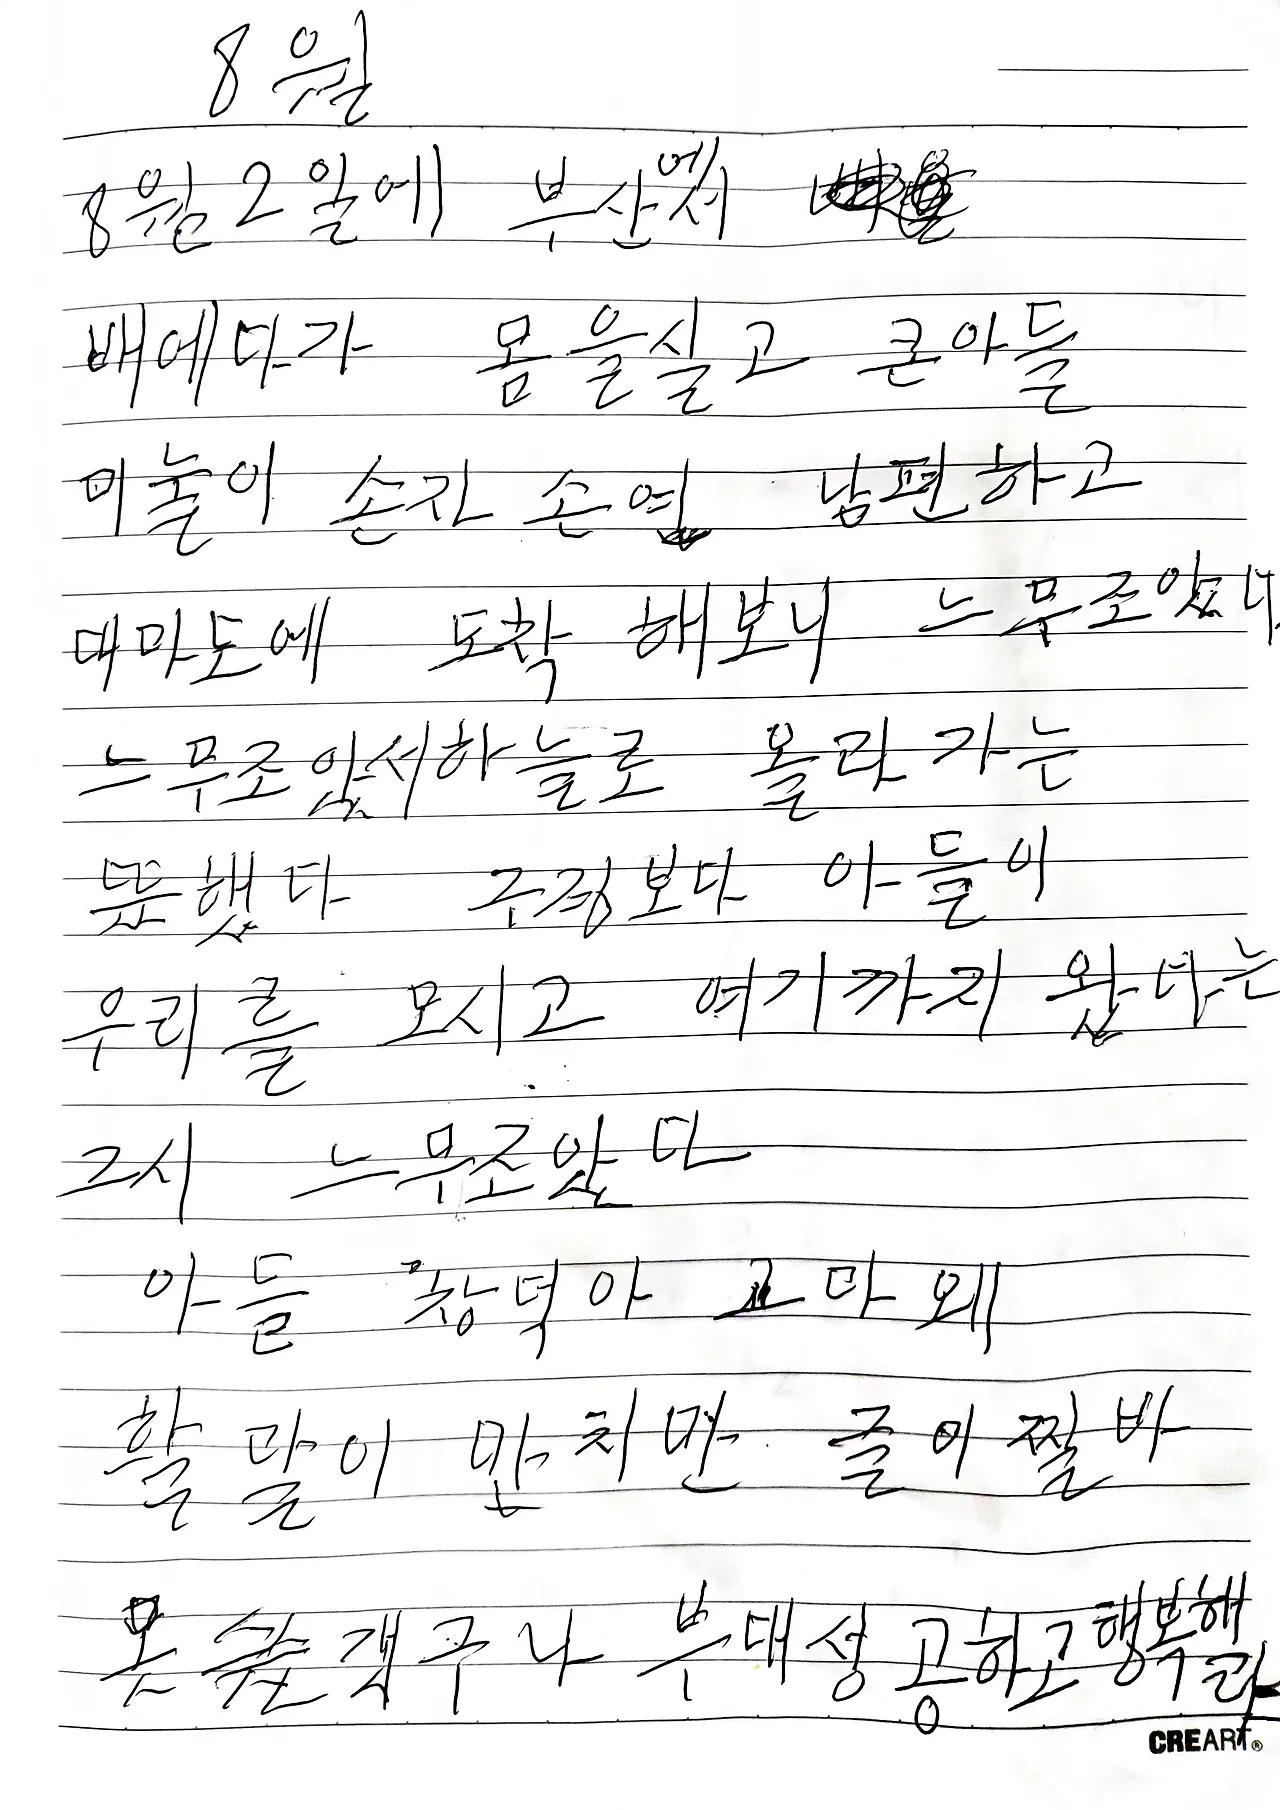 8월
8월2일에 부산에서
배에다가 몸을실고 큰아들
미눌이 손자 손여 남편하고
대마도에 도착 해보니 느무조았다
느무조았서하늘로 올라 가는
뜻했다 구경보다 아들이
우리를 모시고 여기까지 왔다는
그시 느무조았다
아들 창덕아 고마왜
할 말이 만치면 줄이찔바
못 구나 부대성공하고행복해라
CREART®